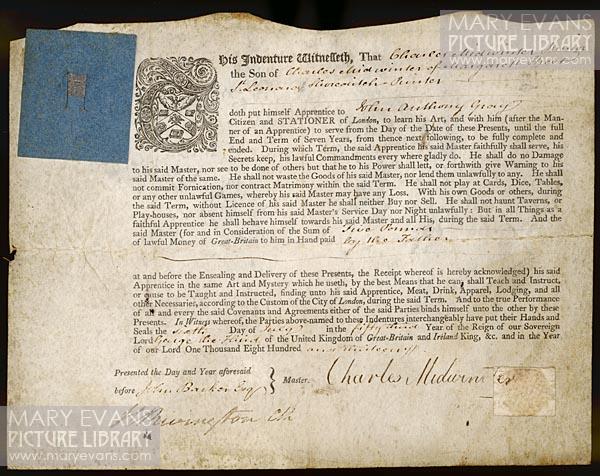 MARY EVANS
PICTURE LIBRARY
This Indenture Witnesseth, That Charles Midwinter
the Son of Charles Midwinter of
St Leonard Shoreditch Printer
doth put himself Apprentice to John Anthony Gray
Citizen and STATIONER of London, to learn his Art, and with him (after the Man-
ner of an Apprentice) to serve from the Day of the Date of these Presents, until the full
End and Term of Seven Years, from thence next following, to be fully complete and
ended. During which Term, the said Apprentice his said Master faithfully shall serve, his
Secrets keep, his lawful Commandments every where gladly do. He shall do no Damage
to his said Master, nor see to be done of others but that he to his Power shall lett, or forthwith give Warning to his
said Master of the same. He shall not waste the Goods of his said Master, nor lend them unlawfully to any. He shall
not commit Fornication, nor contract Matrimony within the said Term. He shall not play at Cards, Dice, Tables,
or any other unlawful Games, whereby his said Master may have any Loss. With his own Goods or others, during
the said Term, without Licence of his said Master he shall neither Buy nor Sell. He shall not haunt Taverns, or
Play-houses, nor absent himself from his said Master's Service Day nor Night unlawfully: But in all Things as a
faithful Apprentice he shall behave himself towards his said Master and all His, during the said Term. And the
said Master (for and in Consideration of the Sum of Five Pounds
of lawful Money of Great-Britain to him in Hand paid by his Father
at and before the Ensealing and Delivery of these Presents, the Receipt whereof is hereby acknowledged) his said
Apprentice in the same Art and Mystery which he useth, by the best Means that he can, shall Teach and Instruct,
or cause to be Taught and Instructed, finding unto his said Apprentice, Meat, Drink, Apparel, Lodging, and all
other Necessaries, according to the Custom of the City of London, during the said Term. And to the true Performance
of all and every the said Covenants and Agreements either of the said Parties binds himself unto the other by these
Presents. In Witness whereof, the Parties above-named to these Indentures interchangeably have put their Hands and
Seals the Sixth Day of July in the fifty third Year of the Reign of our Sovereign
Lord George the Third of the United Kingdom of Great-Britain and Ireland King, &c. and in the Year
of our Lord One Thousand Eight Hundred and thirteen
Presented the Day and Year aforesaid
before John Barker Esqr Master.
Charles Midwinter
MARY EVANS
PICTURE LIBRARY
www.maryevans.com
MARY EVANS
PICTURE LIBRARY
www.maryevans.com